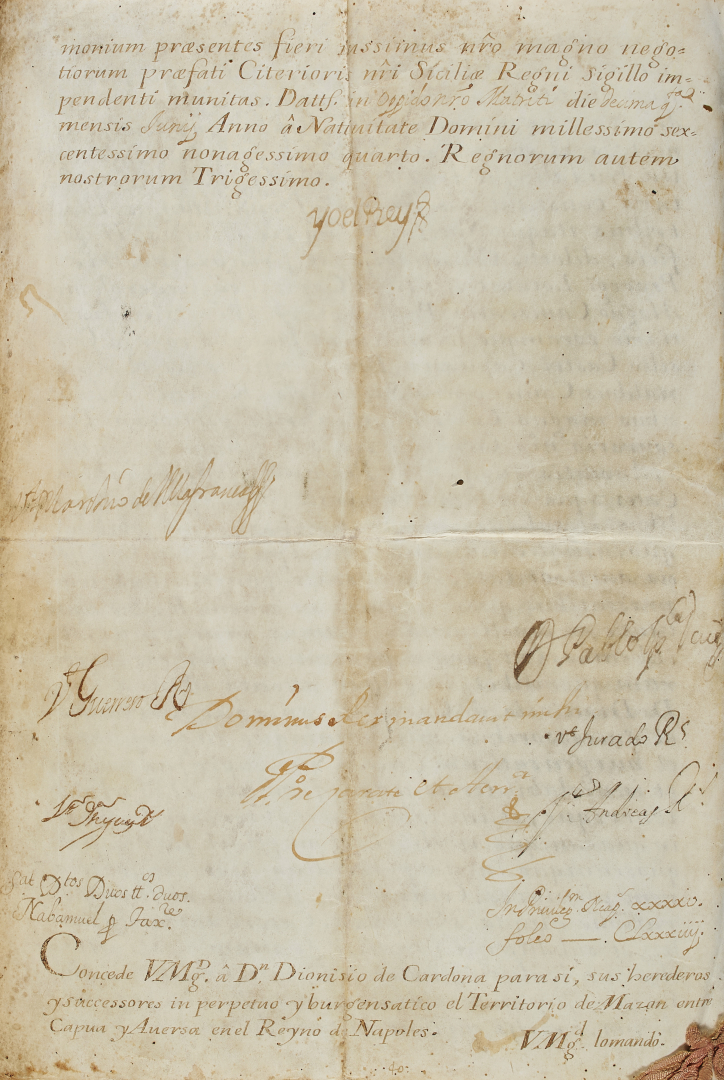 monium præsentes fieri jussimus nr̃o magno nego=
tiorum præfati Citerioris nr̃i Siciliæ Regni Sigillo im=
pendenti munitas. Datt. in Oppido nr̃o Matriti die decima q.ta
mensis Junij Anno â Nativitate Domini millessimo sex=
centessimo nonagessimo quarto. Regnorum autem
nostrorum Trigessimo.
yo el Rey
de Villafranca
Pablo
V.t Guerrero R.s
Dominus Rex mandavit mihi
v.t Jurado R.s
et
Andreas R.s
Sat D.tos Ducos tt.os duos.
Nabamuel p Tax.re
In Privileg.m Neap. xxxxiv.
foleo — Clxxxiiij.
Concede V.Mg.d â D.n Dionisio de Cardona para sí, sus herederos
y successores in perpetuo y burgensatico el Territorio de Mazon entre
Capua y Auersa en el Reyno de Napoles.
V.Mg.d lo mando.